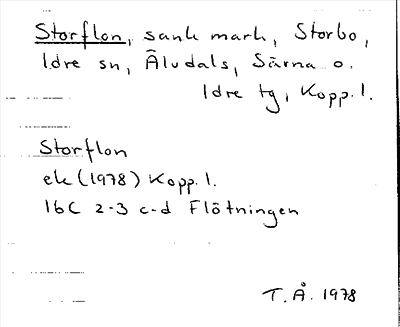 Storflon, sank mark, Storbo,
Idre sn, Älvdals, Särna o.
Idre tg, Kopp. l.
Storflon
ek (1978) Kopp. l.
16C 2-3 c-d Flötningen
T. Å. 1978